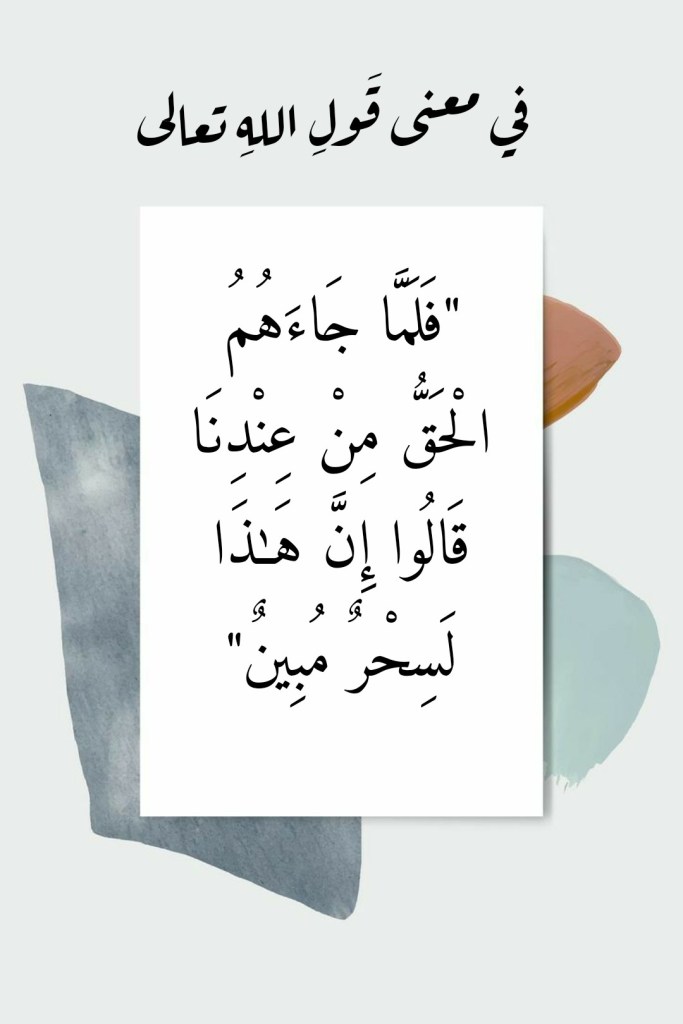 في معنى قَولِ اللهِ تعالى
"فَلَمَّا جَاءَهُمُ
الْحَقُّ مِنْ عِنْدِنَا
قَالُوا إِنَّ هَٰذَا
لَسِحْرٌ مُبِينٌ"